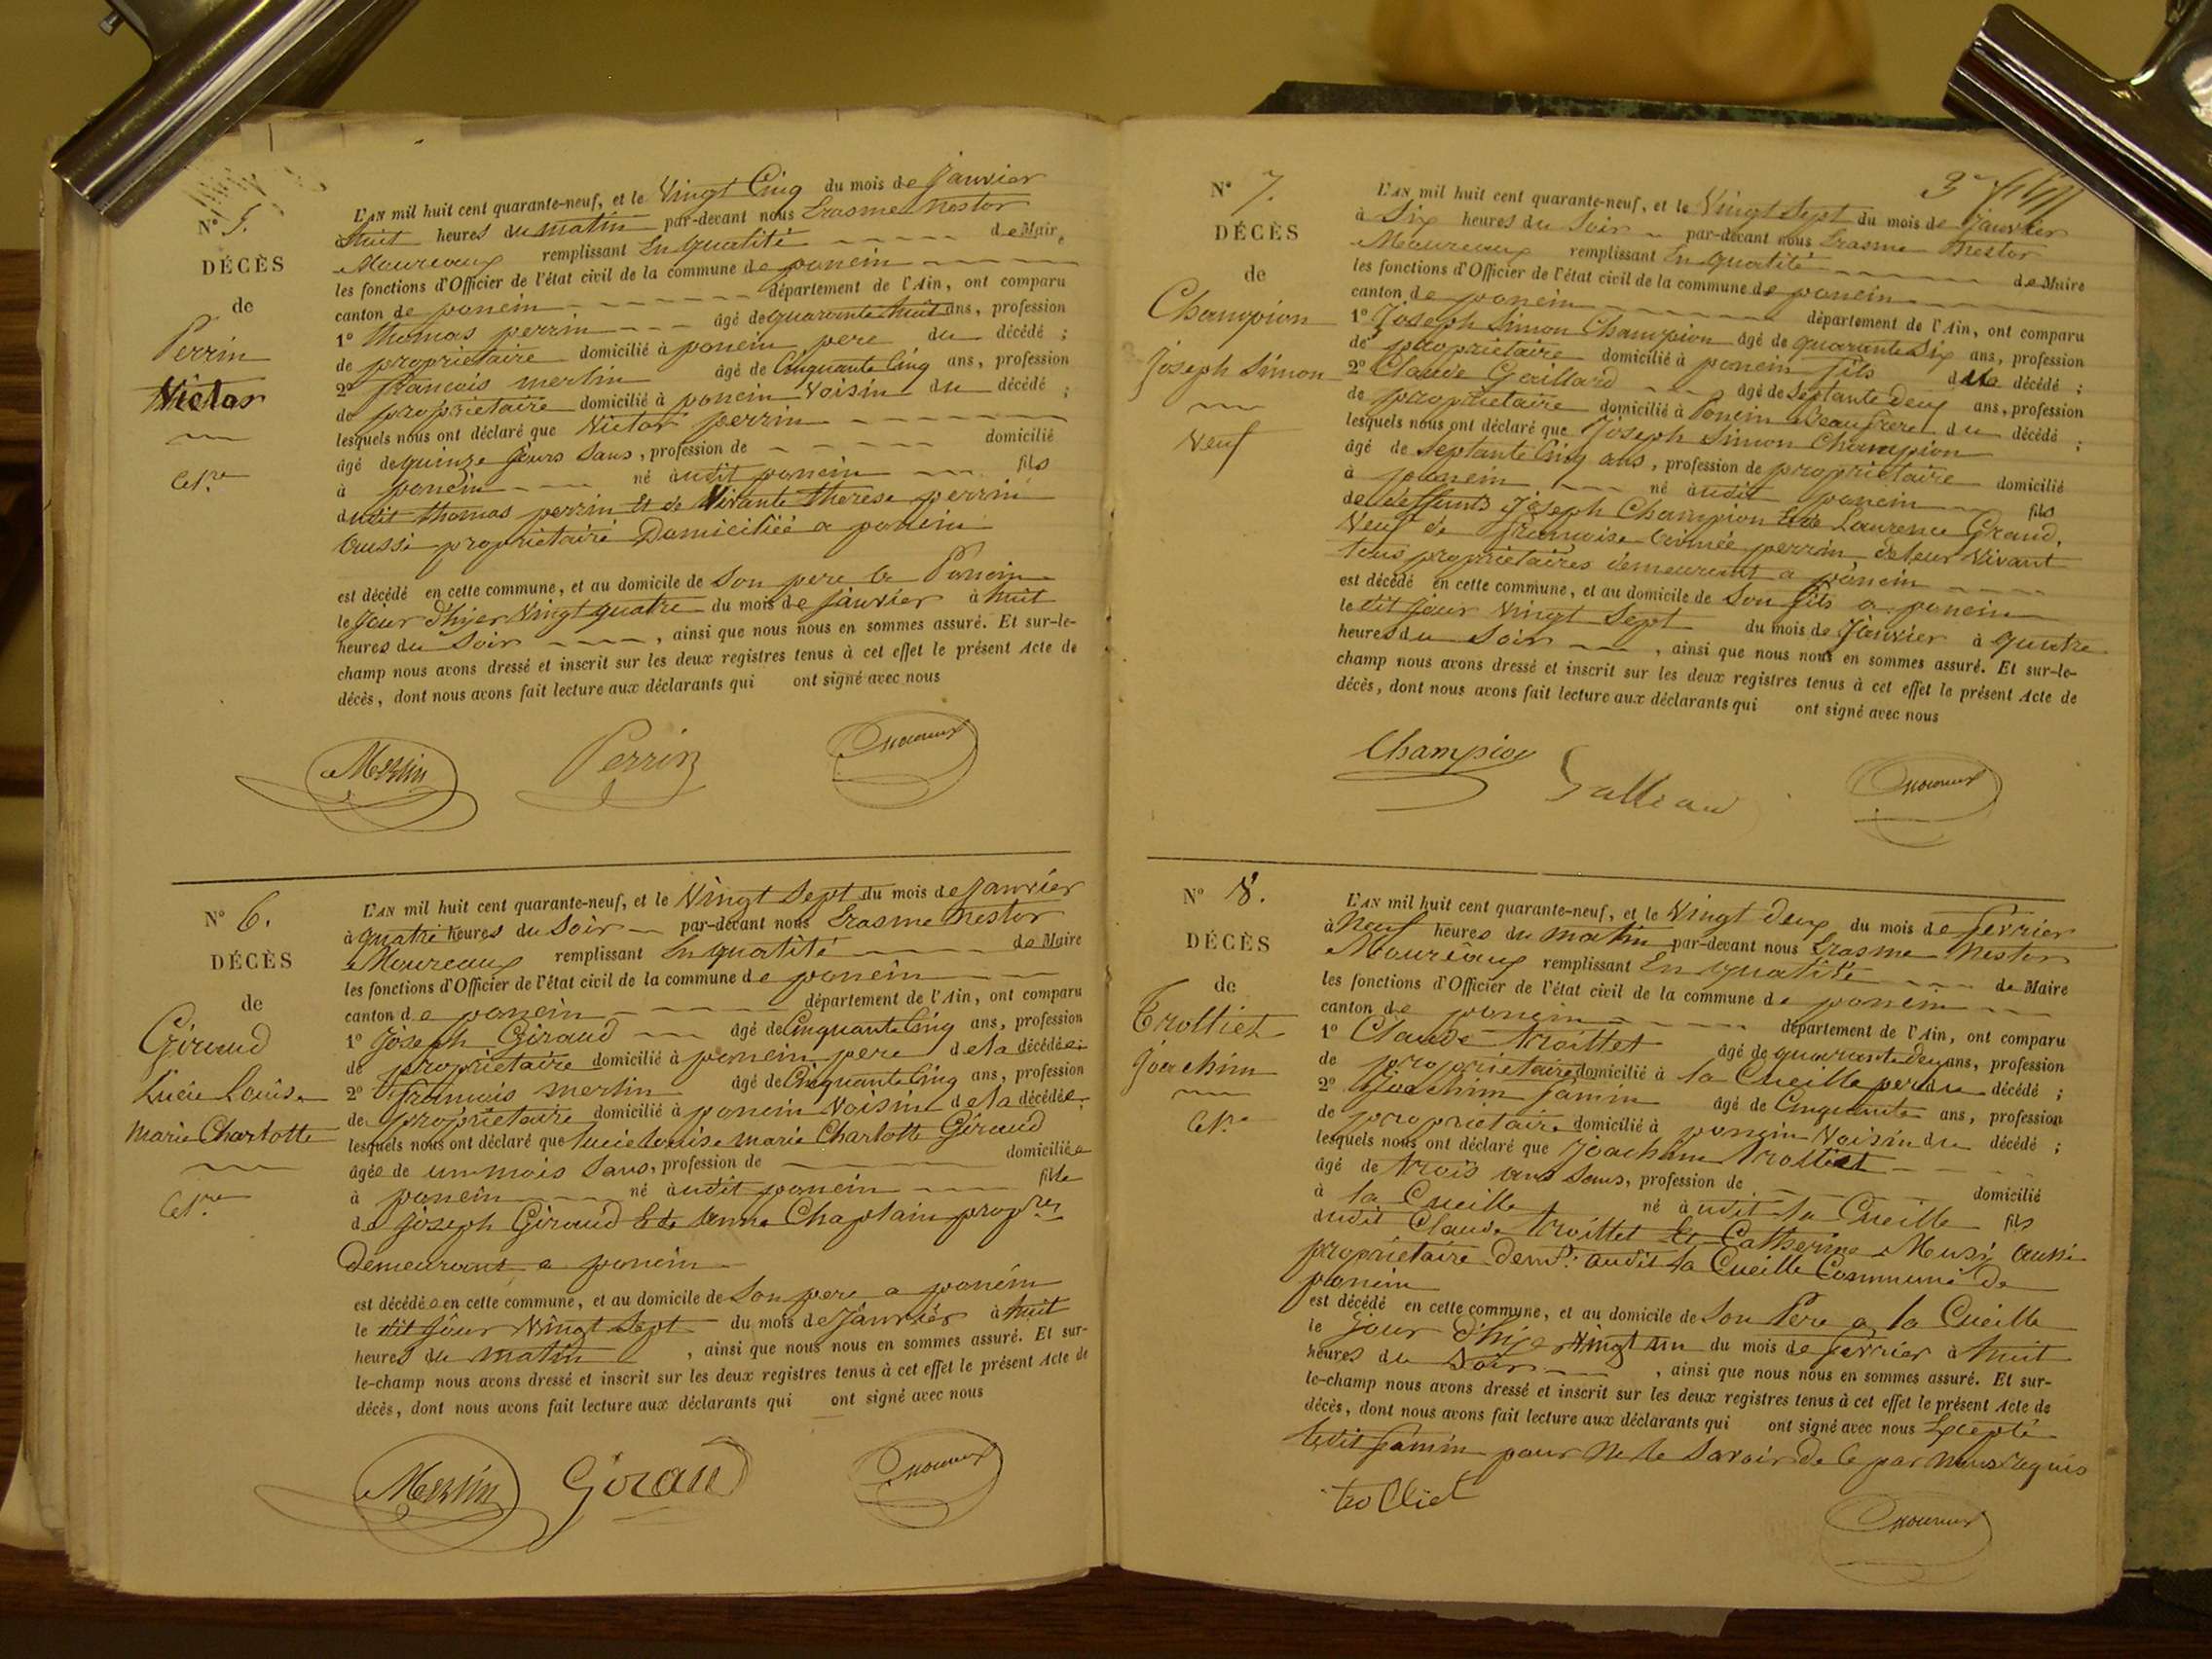 N° 5.
DÉCÈS
de
Perrin
Victor
L'AN mil huit cent quarante-neuf, et le Vingt Cinq du mois de janvier
à huit heures du matin par-devant nous Erasme Nestor
Moureaux remplissant En qualité de Maire
les fonctions d'Officier de l'état civil de la commune de poncin
canton de poncin département de l'Ain, ont comparu
1° thomas perrin âgé de quarante huit ans, profession
de propriétaire domicilié à poncin pere du décédé ;
2° francois merlin âgé de Cinquante Cinq ans, profession
de propriétaire domicilié à poncin Voisin du décédé ;
lesquels nous ont déclaré que Victor perrin
âgé de quinze jours Sans, profession de domicilié
à poncin né audit poncin fils
dudit thomas perrin Et de Vivante therese perrin
aussi propriétaire Domiciliée a poncin
est décédé en cette commune, et au domicile de Son pere a Poncin
le jour d'hyer Vingt quatre du mois de janvier à huit
heures du Soir , ainsi que nous nous en sommes assuré. Et sur-le-
champ nous avons dressé et inscrit sur les deux registres tenus à cet effet le présent Acte de
décès, dont nous avons fait lecture aux déclarants qui ont signé avec nous
Merlin Perrin Moureaux
N° 6.
DÉCÈS
de
Giraud
Lucie Louise
Marie Charlotte
L'AN mil huit cent quarante-neuf, et le Vingt Sept du mois de janvier
à quatre heures du Soir par-devant nous Erasme Nestor
Moureaux remplissant En qualité de Maire
les fonctions d'Officier de l'état civil de la commune de poncin
canton de poncin département de l'Ain, ont comparu
1° joseph Giraud âgé de Cinquante Cinq ans, profession
de propriétaire domicilié à poncin pere de la décédée ;
2° francois merlin âgé de Cinquante Cinq ans, profession
de propriétaire domicilié à poncin Voisin de la décédée ;
lesquels nous ont déclaré que lucie louise marie Charlotte Giraud
âgée de un mois Sans, profession de domiciliée
à poncin né audit poncin fille
de joseph Giraud Et de anne Chaplain propres
Demeurant a poncin
est décédée en cette commune, et au domicile de Son pere a poncin
le dit jour Vingt Sept du mois de janvier à huit
heures du matin , ainsi que nous nous en sommes assuré. Et sur-
le-champ nous avons dressé et inscrit sur les deux registres tenus à cet effet le présent Acte de
décès, dont nous avons fait lecture aux déclarants qui ont signé avec nous
Merlin Giraud Moureaux
N° 7.
DÉCÈS
de
Champion
Joseph Simon
Veuf
L'AN mil huit cent quarante-neuf, et le Vingt Sept du mois de janvier
à Six heures du Soir par-devant nous Erasme Nestor
Moureaux remplissant En qualité de Maire
les fonctions d'Officier de l'état civil de la commune de poncin
canton de poncin département de l'Ain, ont comparu
1° Joseph Simon Champion âgé de quarante Six ans, profession
de propriétaire domicilié à poncin fils du décédé ;
2° Claude Gaillard âgé de Septante Deux ans, profession
de propriétaire domicilié à Poncin Beaufrere du décédé ;
lesquels nous ont déclaré que Joseph Simon Champion
âgé de Septante Cinq ans, profession de propriétaire domicilié
à poncin né audit poncin fils
de deffunts Joseph Champion Et de Laurence Grand,
Veuf de francoise aimée perrin de leur Vivant
tous propriétaires demeurant a poncin
est décédé en cette commune, et au domicile de Son fils a poncin
le dit jour Vingt Sept du mois de janvier à quatre
heures du Soir , ainsi que nous nous en sommes assuré. Et sur-le-
champ nous avons dressé et inscrit sur les deux registres tenus à cet effet le présent Acte de
décès, dont nous avons fait lecture aux déclarants qui ont signé avec nous
Champion Moureaux
N° 8.
DÉCÈS
de
Trolliet
Joachim
L'AN mil huit cent quarante-neuf, et le Vingt Deux du mois de fevrier
à Neuf heures du matin par-devant nous Erasme Nestor
Moureaux remplissant En qualité de Maire
les fonctions d'Officier de l'état civil de la commune de poncin
canton de poncin département de l'Ain, ont comparu
1° Claude trolliet âgé de quarante deux ans, profession
de propriétaire domicilié à la Cueille pere du décédé ;
2° Joachim Jamin âgé de Cinquante ans, profession
de propriétaire domicilié à poncin Voisin du décédé ;
lesquels nous ont déclaré que Joachim trolliet
âgé de trois ans Sans, profession de domicilié
à la Cueille né audit la Cueille fils
dudit Claude trolliet Et Catherine Musy aussi
propriétaire demt. audit la Cueille Commune de
poncin
est décédé en cette commune, et au domicile de Son Pere a la Cueille
le jour d'hyer Vingt un du mois de fevrier à huit
heures du Soir , ainsi que nous nous en sommes assuré. Et sur-
le-champ nous avons dressé et inscrit sur les deux registres tenus à cet effet le présent Acte de
décès, dont nous avons fait lecture aux déclarants qui ont signé avec nous Excepté
ledit Jamin pour Ne le Savoir de Ce par nous requis
trolliet Moureaux